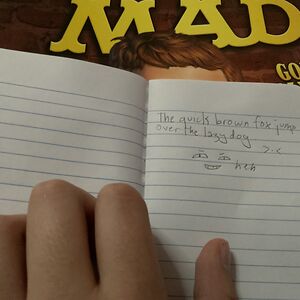 MAD
GO
The quick brown fox jump
over the lazy dog
>.<
heh